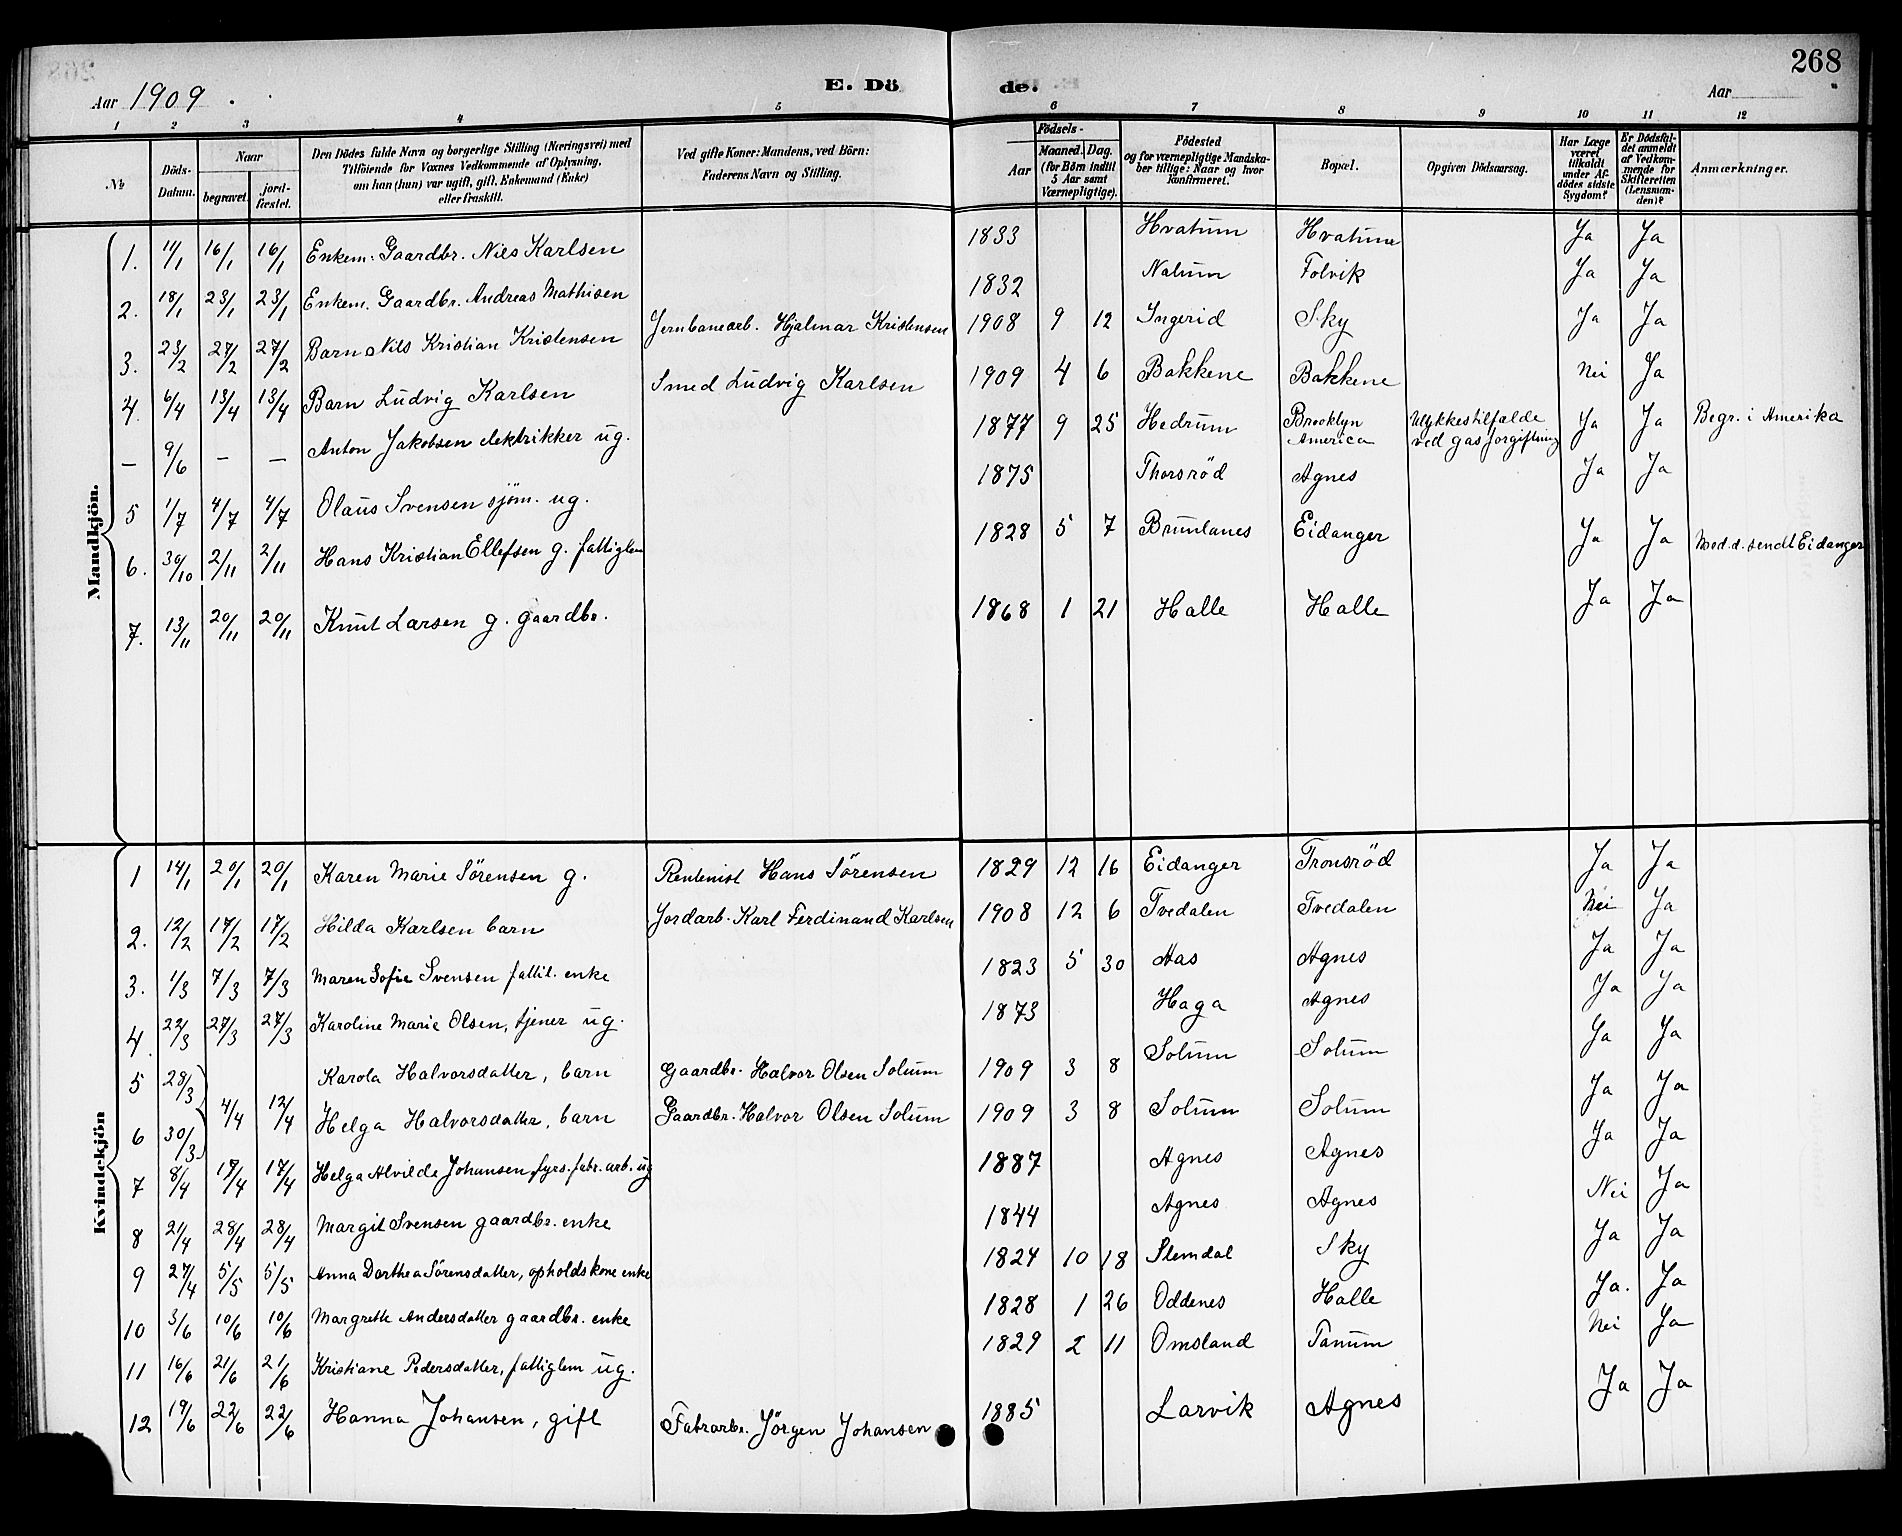 268
Aar 1909. E. Dö de. Aar
1 2 3 4 5 6 7 8 9 10 11 12
№ Döds-Datum. Naar begravet. jordfæstet. Den Dödes fulde Navn og borgerlige Stilling (Næringsvei) med Tilföiende for Voxnes Vedkommende af Oplysning, om han (hun) var ugift, gift, Enkemand (Enke) eller fraskilt. Ved gifte Koner: Mandens, ved Börn: Faderens Navn og Stilling. Födsels- Aar Maaned. Dag. (for Börn indtil 5 Aar samt Værnepligtige). Födested og for værnepligtige Mandskaber tillige: Naar og hvor konfirmeret. Bopæl. Opgiven Dödsaarsag. Har Læge været tilkaldt under Afdödes sidste Sygdom? Er Dödsfaldet anmeldt af Vedkommende for Skifteretten (Lensmanden)? Anmærkninger.
Mandkjön.
1. 11/1 16/1 16/1 Enkem. Gaardbr. Nils Karlsen 1833 Hvatum Hvatum Ja Ja
2. 18/1 23/1 23/1 Enkem. Gaardbr. Andreas Mathisen 1832 Nalum Folvik Ja Ja
3. 23/2 27/2 27/2 Barn Nils Kristian Kristensen Jernbanearb. Hjalmar Kristensen 1908 9 12 Ingerid Sky Ja Ja
4. 6/4 13/4 13/4 Barn Ludvig Karlsen Smed Ludvig Karlsen 1909 4 6 Bakkene Bakkene Nei Ja
– 9/6 – – Anton Jakobsen elektrikker ug. 1877 9 25 Hedrum Brooklyn America Ulykkestilfælde ved gasforgiftning Ja Ja Begr. i Amerika
5 1/7 4/7 4/7 Olaus Svensen sjöm. ug. 1875 Thorsröd Agnes Ja Ja
6. 30/10 2/11 2/11 Hans Kristian Ellefsen g. fattiglem 1828 5 7 Brunlanes Eidanger Ja Ja Med. d. sendt Eidanger
7. 13/11 20/11 20/11 Knut Larsen g. gaardbr. 1868 1 21 Halle Halle Ja Ja
Kvindekjön
1 14/1 20/1 20/1 Karen Marie Sörensen g. Rentenist Hans Sörensen 1829 12 16 Eidanger Tronsröd Ja Ja
2. 12/2 17/2 17/2 Hilda Karlsen barn Jordarb. Karl Ferdinand Karlsen 1908 12 6 Tvedalen Tvedalen Nei Ja
3. 1/3 7/3 7/3 Maren Sofie Svensen fattil. enke 1823 5 30 Aas Agnes Ja Ja
4. 22/3 27/3 27/3 Karoline Marie Olsen, tjener ug. 1873 Haga Agnes Ja Ja
5 28/3 Karola Halvorsdatter, barn Gaardbr. Halvor Olsen Solum 1909 3 8 Solum Solum Ja Ja
6 30/3 4/4 12/4 Helga Halvorsdatter, barn Gaardbr. Halvor Olsen Solum 1909 3 8 Solum Solum Ja Ja
7 8/4 17/4 17/4 Helga Alvilde Johansen, fyrs. fabr. arb. ug 1887 Agnes Agnes Ja Ja
8 21/4 28/4 28/4 Margit Svensen gaardbr. enke 1844 Agnes Agnes Nei Ja
9 27/4 5/5 5/5 Anna Dorthea Sörensdatter, opholdskone enke 1824 10 18 Slemdal Sky Ja Ja
10 3/6 10/6 10/6 Margrethe Andersdatter gaardbr. enke 1828 1 26 Oddenes Halle Ja. Ja
11 16/6 21/6 21/6 Kristiane Pedersdatter, fattiglem ug. 1829 2 11 Omsland Tanum Nei Ja
12 19/6 22/6 22/6 Hanna Johansen, gift Fabrarb. Jörgen Johansen 1885 Larvik Agnes Ja Ja